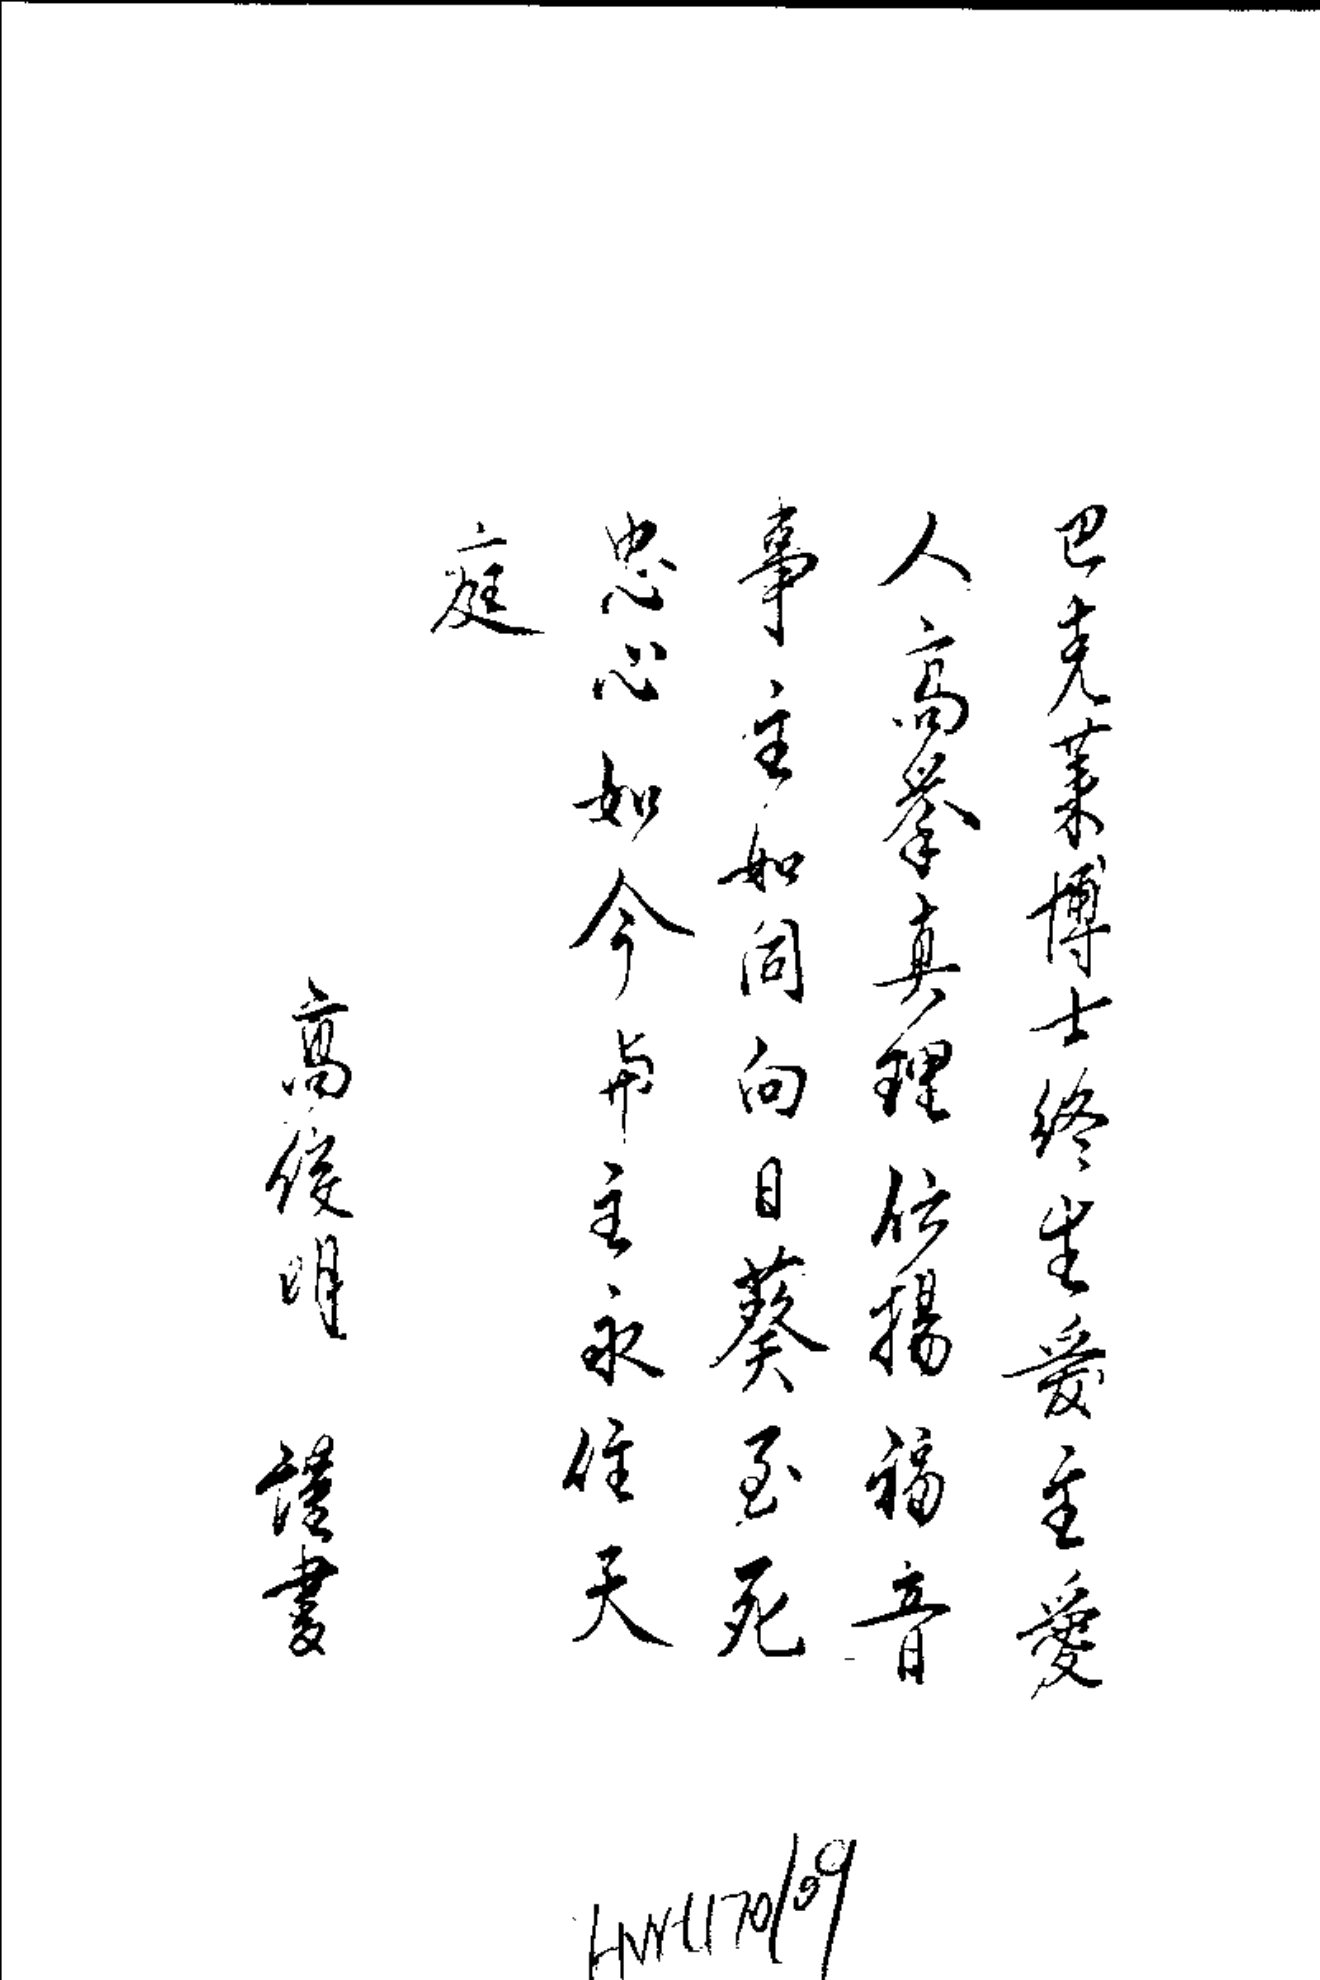 巴克萊博士終生愛主愛
人高舉真理傳揚福音
事主如同向日葵至死
忠心如今與主永住天
庭
高俊明 謹書